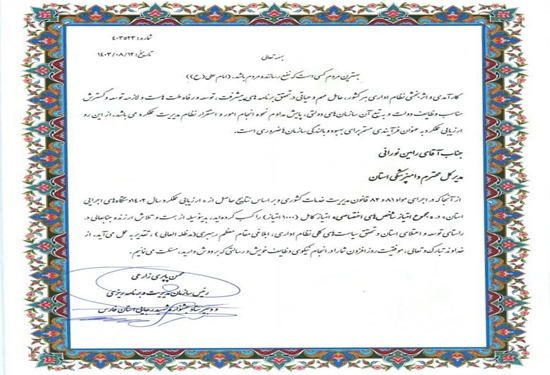 شماره: ۴۰۳۵۲۳
تاریخ: ۱۴۰۳/۰۸/۱۳
بسمه تعالی
بهترین مردم کسی است که نفع رساننده مردم باشد. (امام علی (ع))
کارآمدی و اثربخشی نظام اداری هر کشور، عامل مهم و حیاتی در تحقق برنامه های پیشرفت، توسعه و رفاه ملت هاست و لازمه توسعه و گسترش
مناسب وظایف دولت و به تبع آن سازمان‌های دولتی، پایش مداوم نحوه انجام امور و استقرار نظام مدیریت عملکرد می باشد. از این رو
ارزیابی عملکرد به عنوان فرآیندی مستمر برای بهبود و بالندگی سازمان‌ها ضروری است.
جناب آقای رامین نورانی
مدیرکل محترم دامپزشکی استان
از آنجا که در اجرای مواد ۸۱ و ۸۲ قانون مدیریت خدمات کشوری و بر اساس نتایج حاصل از ارزیابی عملکرد سال ۱۴۰۲ دستگاه‌های اجرایی
استان، در مجموع امتیاز شاخص‌های اختصاصی، امتیاز کامل (۱۰۰۰ امتیاز) را کسب کرده‌اید، بدینوسیله از همت و تلاش ارزنده جنابعالی در
راستای توسعه و اعتلای استان و تحقق سیاست‌های کلی نظام اداری، ابلاغی مقام معظم رهبری (مدظله العالی)، تقدیر به عمل می‌آید. از
خداوند تبارک و تعالی، موفقیت روز افزون شما را در انجام نیکوی وظایف خویش و رسالتی که بر دوش دارید، مسئلت می‌نمائیم.
محسن یاری زارعی
رئیس سازمان مدیریت و برنامه ریزی
و دبیر ستاد جشنواره شهید رجایی استان فارس